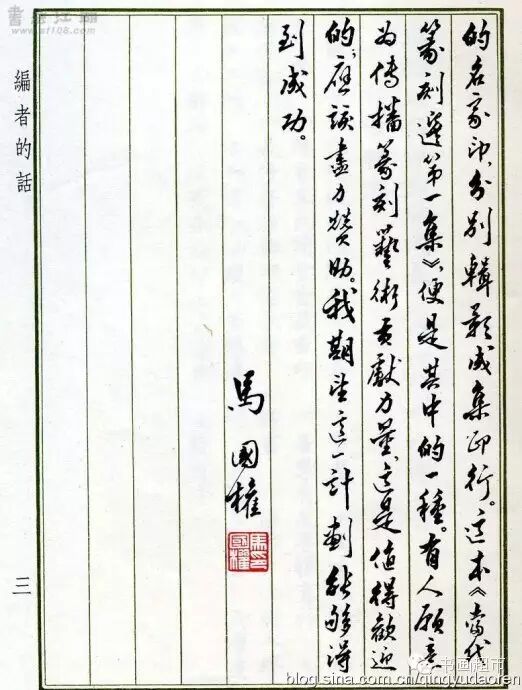 的名家印,分别輯影成集印行。这本《當代
篆刻選第一集》,便是其中的一種。有人願意
为传播篆刻藝術貢獻力量,这是值得歡迎
的,應該盡力贊助。我期望這一計劃能夠得
到成功。
馬國權
編者的話
三
書畫江湖
www.sf108.com
书画超市
blog.sina.com.cn/qingyudaoren